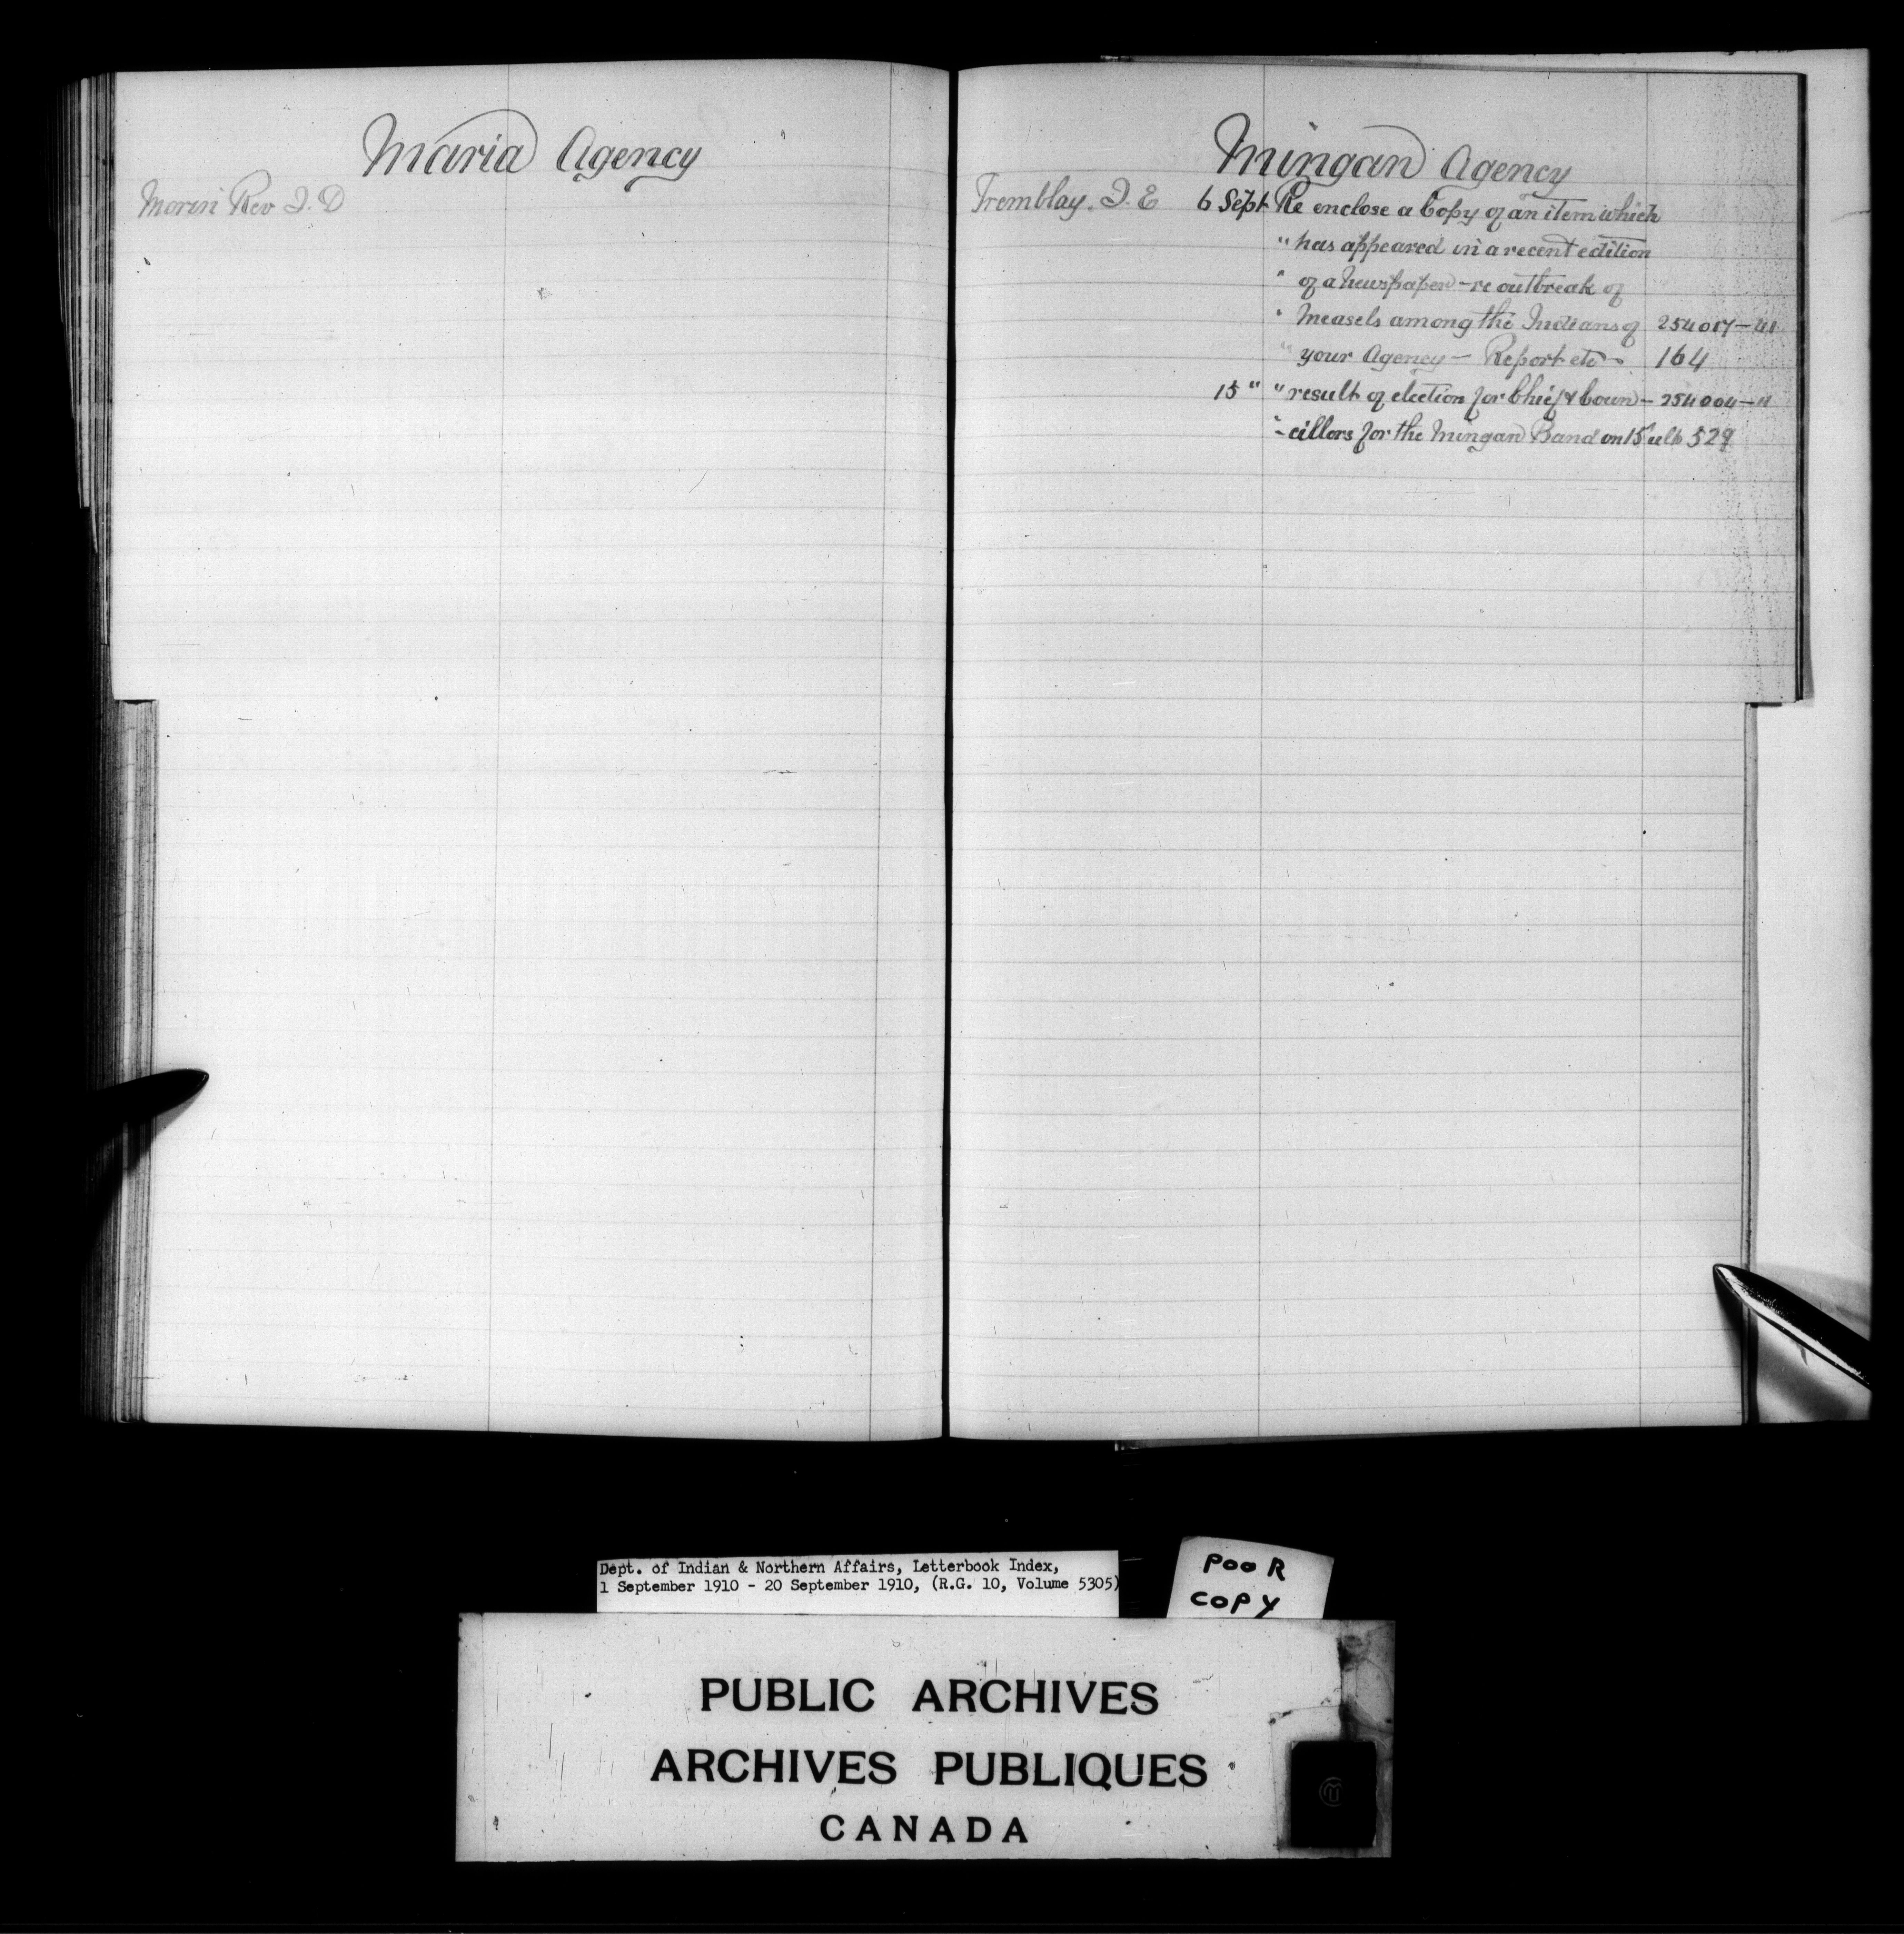 Maria Agency
Morin Rev J. D
Mingan Agency
Tremblay. J. E 6 Sept Re enclose a Copy of an item which
" has appeared in a recent edition
" of a Newspaper - re outbreak of
" Measels among the Indians of 254017-41
" your Agency - Report etc 164
15 " " result of election for Chief & Coun- 254004-11
" -cillors for the Mingan Band on 15 ult 529
Dept. of Indian & Northern Affairs, Letterbook Index,
1 September 1910 - 20 September 1910, (R.G. 10, Volume 5305)
POOR
COPY
PUBLIC ARCHIVES
ARCHIVES PUBLIQUES
CANADA